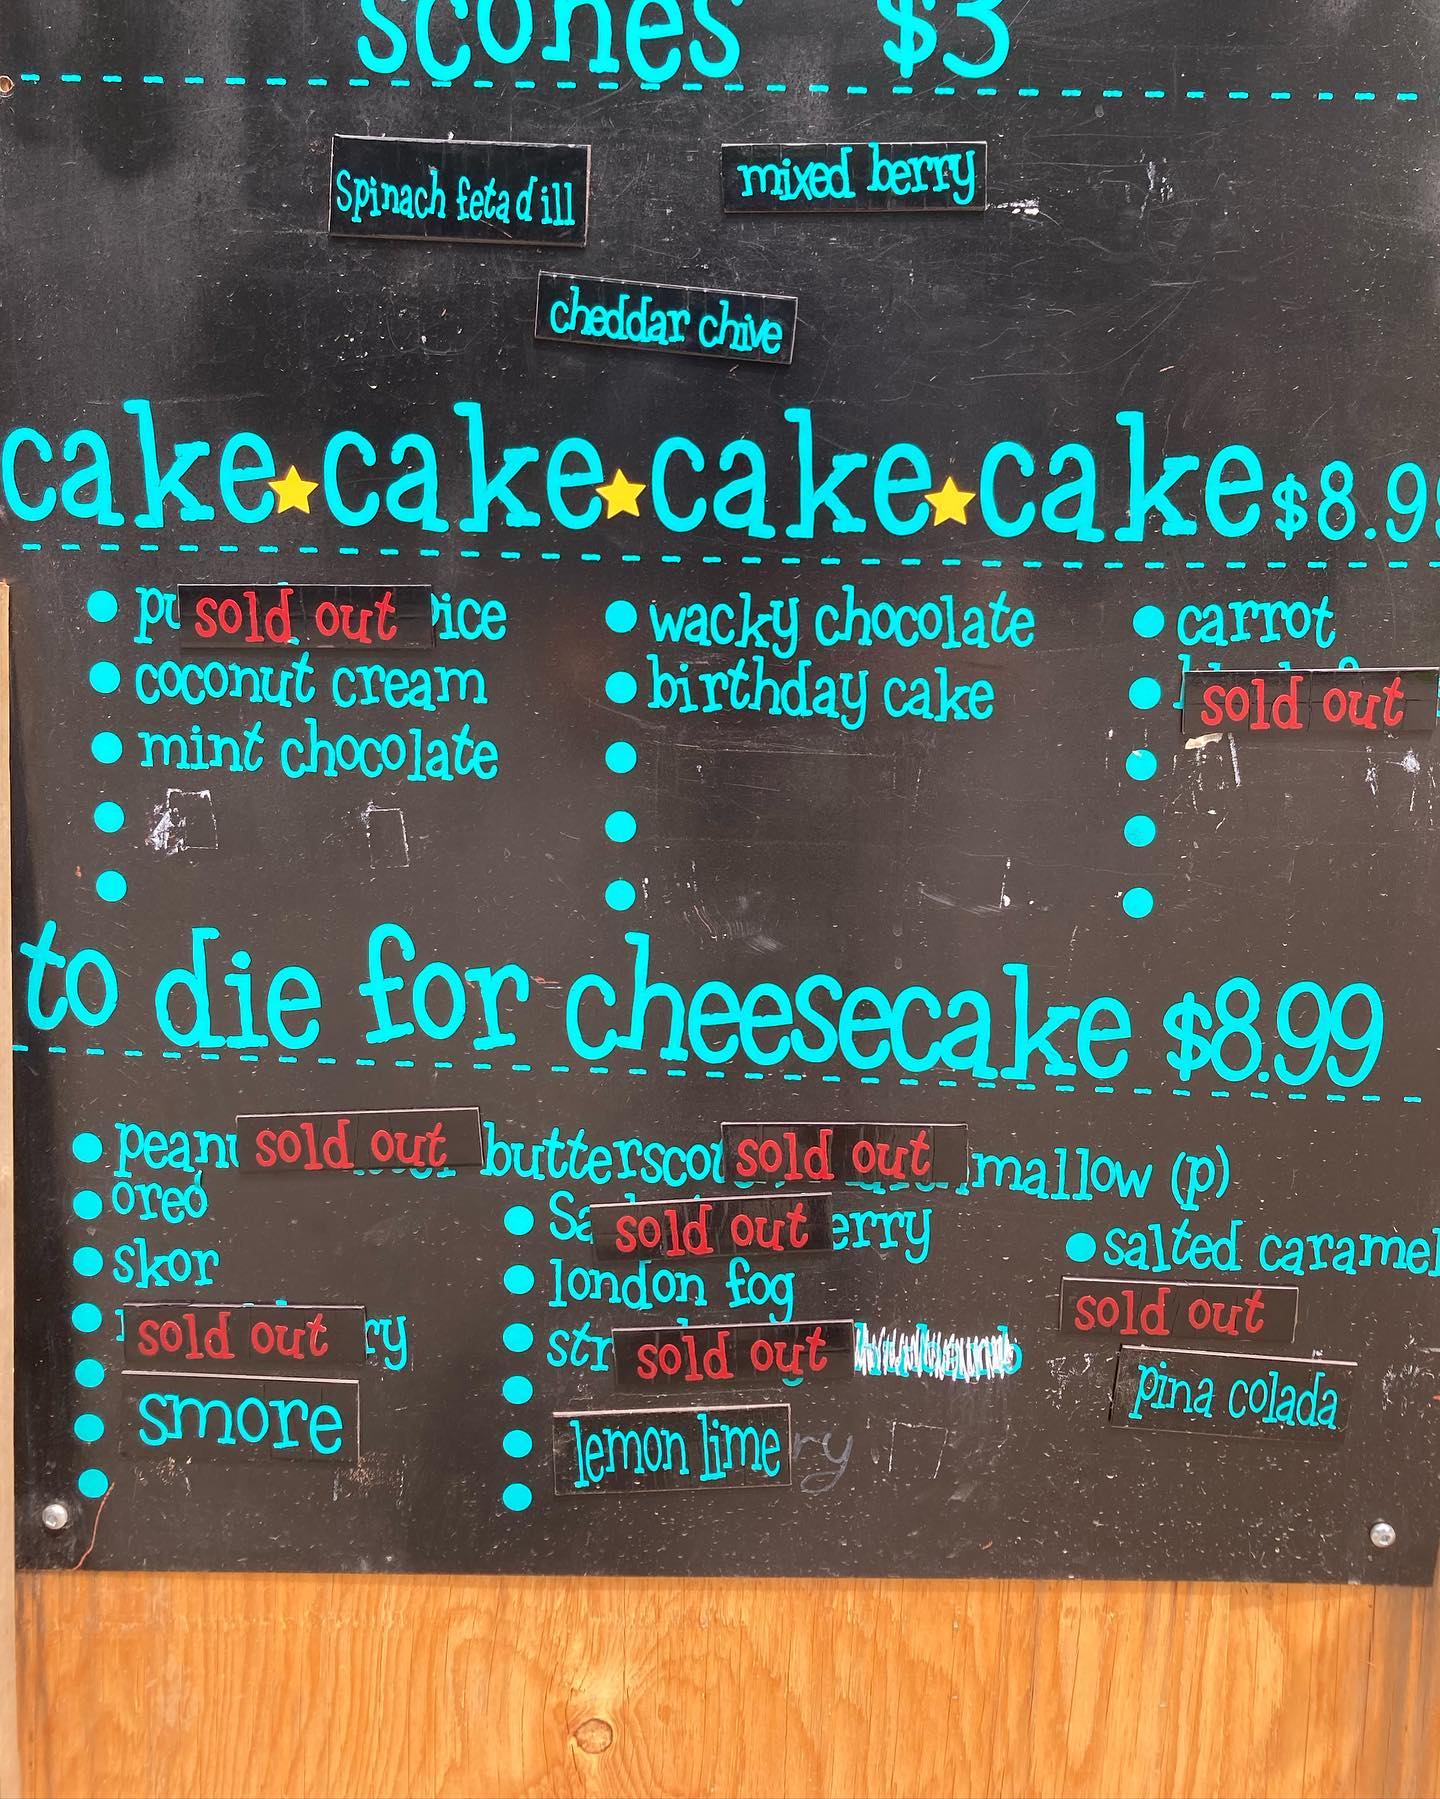 scones $3
Spinach feta dill mixed berry
cheddar chive
cake cake cake cake $8.9
sold out wacky chocolate carrot
coconut cream birthday cake sold out
mint chocolate
to die for cheesecake $8.99
sold out sold out mallow (p)
oreo sold out salted caramel
skor london fog sold out
sold out sold out pina colada
smore lemon lime